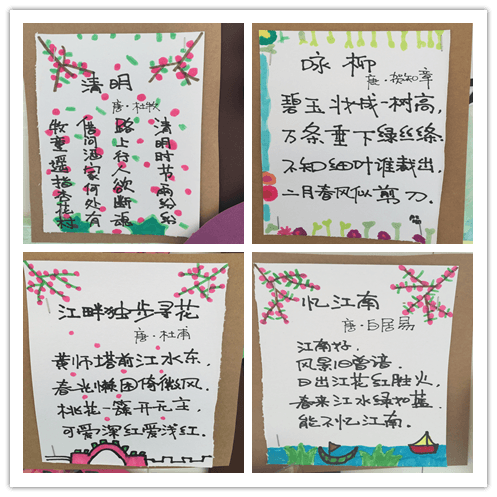 清明
唐·杜牧
清明时节雨纷纷
路上行人欲断魂
借问酒家何处有
牧童遥指杏花村
咏柳
唐·贺知章
碧玉妆成一树高,
万条垂下绿丝绦.
不知细叶谁裁出,
二月春风似剪刀.
江畔独步寻花
唐·杜甫
黄师塔前江水东,
春光懒困倚微风.
桃花一簇开无主,
可爱深红爱浅红.
忆江南
唐·白居易
江南好,
风景旧曾谙.
日出江花红胜火,
春来江水绿如蓝.
能不忆江南.